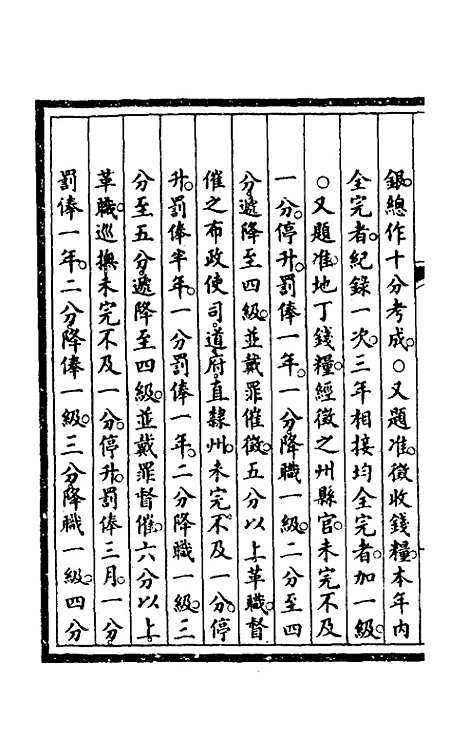 銀總作十分考成○又題准徵收錢糧本年內
全完者紀錄一次三年相接均全完者加一級
○又題准地丁錢糧經徵之州縣官未完不及
一分停升罰俸一年一分降職一級二分至四
分遞降至四級並戴罪催徵五分以上革職督
催之布政使司道府直隸州未完不及一分停
升罰俸半年一分罰俸一年二分降職一級三
分至五分遞降至四級並戴罪督催六分以上
革職巡撫未完不及一分停升罰俸三月一分
罰俸一年二分降俸一級三分降職一級四分